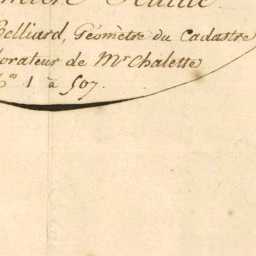 Feuille.
Belliard, Géomètre du Cadastre
orateur de Mr Chalette
No 1 à 507.